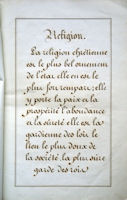 Religion.
La religion chrétienne
est le plus bel ornement
de l'état elle en est le
plus fort rempart; elle
y porte la paix et la
prospérité l'abondance
et la sûreté elle est la
gardienne des loix le
lien le plus doux de
la société, la plus sûre
garde des rois